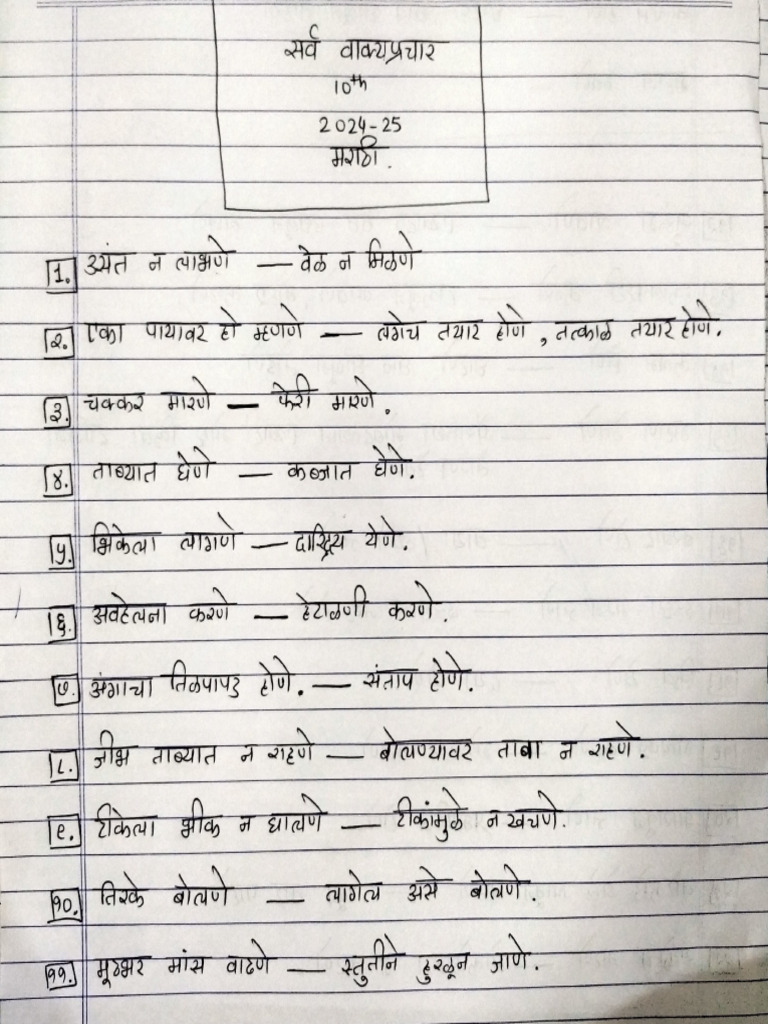 सर्व वाक्यप्रचार
10th
2024-25
मराठी.
1. उसंत न लाभणे — वेळ न मिळणे
२. एका पायावर हो म्हणणे — लगेच तयार होणे , तत्काळ तयार होणे.
३. चक्कर मारणे — फेरी मारणे.
४. ताब्यात घेणे — कब्जात घेणे.
५. भिकेला लागणे — दारिद्र्य येणे.
६. अवहेलना करणे — हेटाळणी करणे.
७. अंगाचा तिळपापड होणे. — संताप होणे.
८. जीभ ताब्यात न राहणे — बोलण्यावर ताबा न राहणे.
९. टीकेला भीक न घालणे — टीकांमुळे न खचणे.
१०. तिरके बोलणे — लागेल असे बोलणे.
११. मूठभर मांस वाढणे — स्तुतीने हुरळून जाणे.